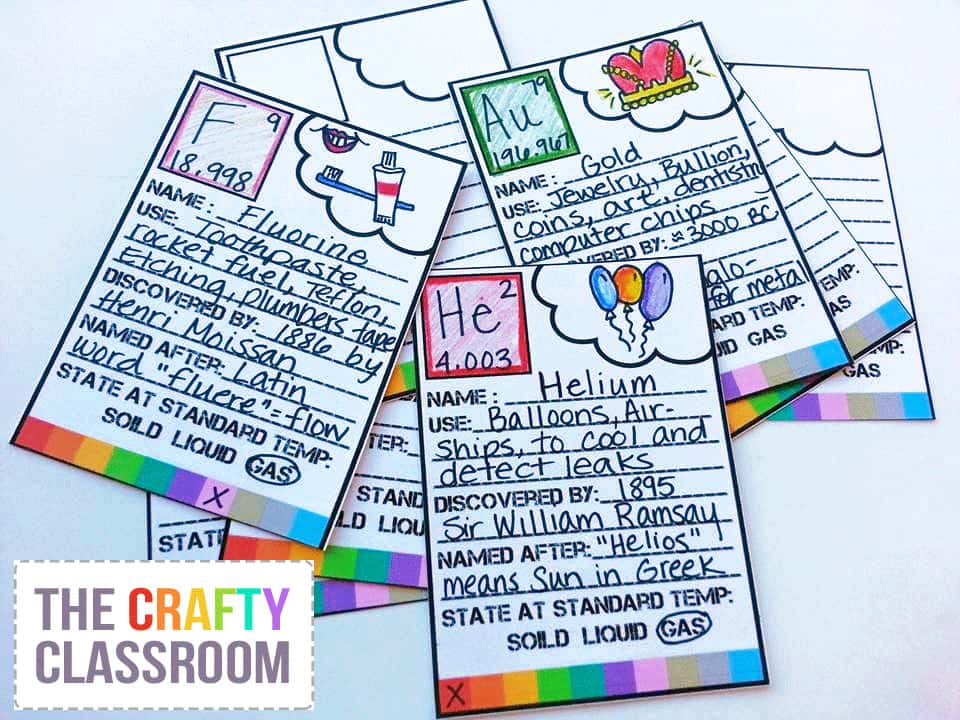 F 9
18.998
NAME: Fluorine
USE: Toothpaste,
rocket fuel, Teflon,
Etching, plumbers tape
DISCOVERED BY: 1886 by
Henri Moissan
NAMED AFTER: Latin
word "fluere"=flow
STATE AT STANDARD TEMP:
SOILD LIQUID GAS
X
Au 79
196.967
NAME: Gold
USE: Jewelry, Bullion,
coins, art, dentistry
computer chips
BY: ≈3000 BC
glo-
for metal
ARD TEMP:
ID GAS
He 2
4.003
NAME: Helium
USE: Balloons, Air-
ships, to cool and
detect leaks
DISCOVERED BY: 1895
Sir William Ramsay
NAMED AFTER: "Helios"
means Sun in Greek
STATE AT STANDARD TEMP:
SOILD LIQUID GAS
X
TER:
STAND
LD LIQU
STATE
TEMP:
GAS
MP:
GAS
THE CRAFTY
CLASSROOM